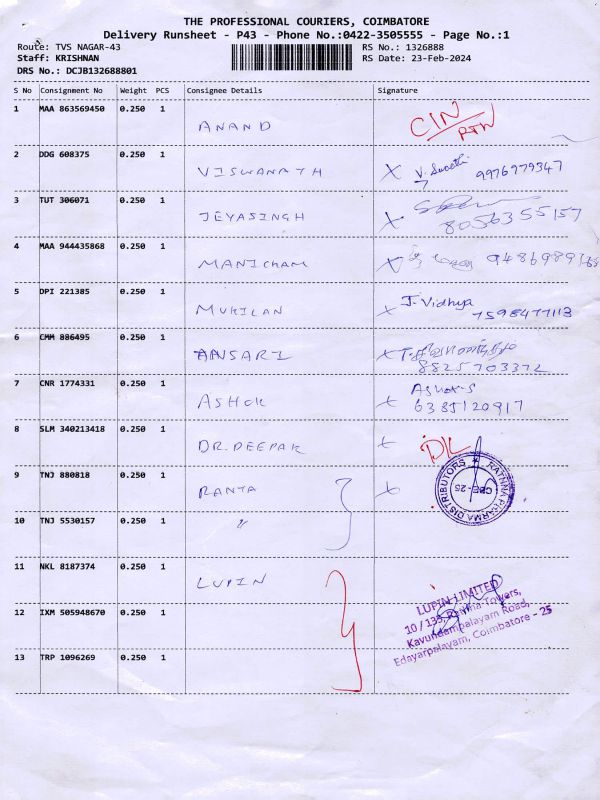 THE PROFESSIONAL COURIERS, COIMBATORE
Delivery Runsheet - P43 - Phone No.:0422-3505555 - Page No.:1
Route: TVS NAGAR-43 RS No.: 1326888
Staff: KRISHNAN RS Date: 23-Feb-2024
DRS No.: DCJB132688801
S No Consignment No Weight PCS Consignee Details Signature
1 MAA 863569450 0.250 1 ANAND CIN
RTN
2 DDG 608375 0.250 1 VISWANATH X V. Swathi 9976979347
3 TUT 306071 0.250 1 JEYASINGH X 8056355157
4 MAA 944435868 0.250 1 MANICHAM X
5 DPI 221385 0.250 1 MUKILAN X J. Vidhya
7598477113
6 CMM 886495 0.250 1 ANSARI X
8825703372
7 CNR 1774331 0.250 1 ASHOK X Ashok-S
6385120917
8 SLM 340213418 0.250 1 DR. DEEPAK X D/L
9 TNJ 880818 0.250 1 RANTA X RATNNA PHARMA DISTRIBUTORS
CBE - 25
10 TNJ 5530157 0.250 1 "
11 NKL 8187374 0.250 1 LUPIN
LUPIN LIMITED
12 IXM 505948670 0.250 1 10 / 133, Towers,
Kavundampalayam Road,
13 TRP 1096269 0.250 1 Edayarpalayam, Coimbatore - 25